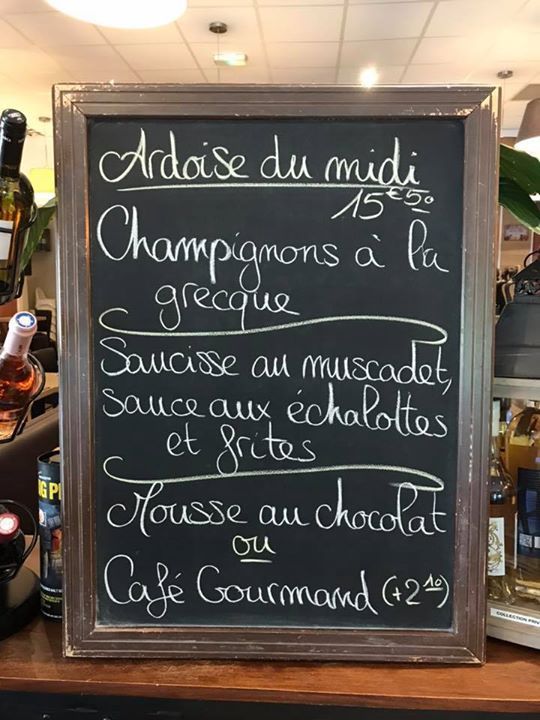 Ardoise du midi
15€50
Champignons à la
grecque
Saucisse au muscadet,
sauce aux échalottes
et frites
Mousse au chocolat
ou
Café Gourmand (+2 10)
G P
COLLECTION PRIV